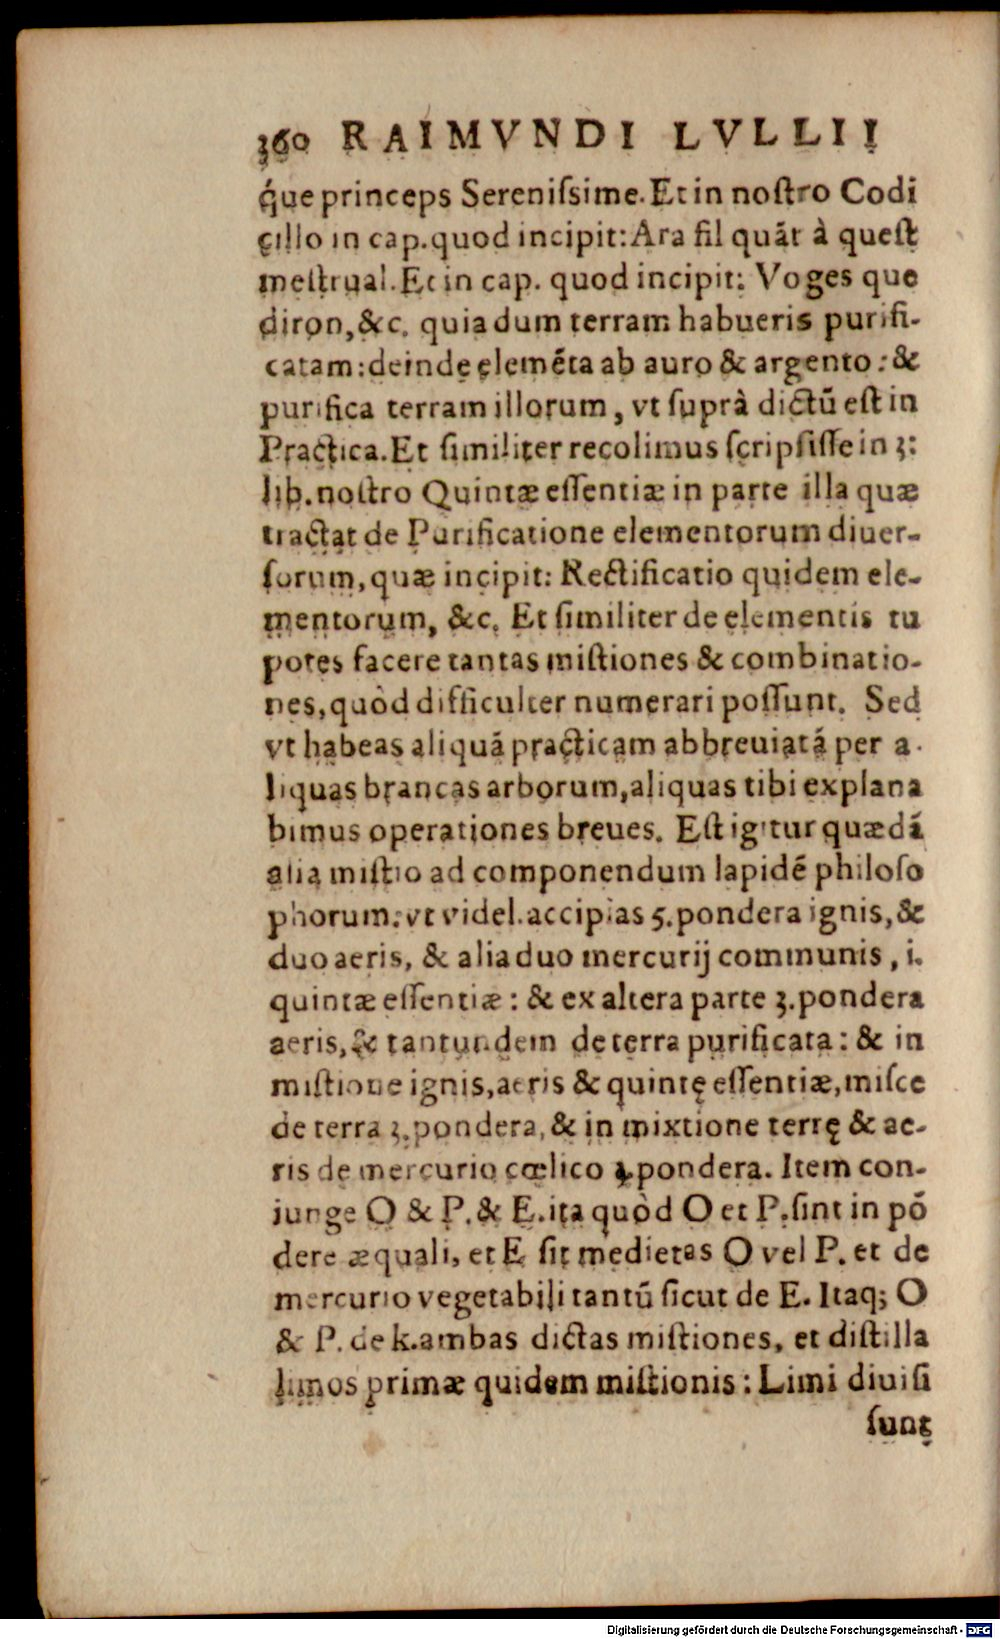 360 RAIMVNDI LVLLII
q́ue princeps Sereniſsime. Et in noſtro Codi
cillo in cap. quod incipit: Ara fil quãt à queſt
meſtrual. Et in cap. quod incipit: Voges que
diron, &c. quia dum terram habueris purifi-
catam: deinde elemẽta ab auro & argento: &
purifica terram illorum, vt ſuprà dictũ eſt in
Practica. Et ſimiliter recolimus ſcripſiſſe in 3:
lib. noſtro Quintæ eſſentiæ in parte illa quæ
tractat de Purificatione elementorum diuer-
ſorum, quæ incipit: Rectificatio quidem ele-
mentorum, &c. Et ſimiliter de elementis tu
potes facere tantas miſtiones & combinatio-
nes, quòd difficulter numerari poſſunt. Sed
vt habeas aliquã practicam abbreuiatã per a-
liquas brancas arborum, aliquas tibi explana
bimus operationes breues. Eſt igitur quædã
alia miſtio ad componendum lapidẽ philoſo
phorum: vt videl. accipias 5. pondera ignis, &
duo aeris, & alia duo mercurij communis, i.
quintæ eſſentiæ: & ex altera parte 3. pondera
aeris, & tantundem de terra purificata: & in
miſtione ignis, aeris & quintę eſſentiæ, miſce
de terra 3. pondera, & in mixtione terrę & ae-
ris de mercurio cœlico pondera. Item con-
iunge O & P. & E. ita quòd O et P. ſint in põ
dere æquali, et E ſit medietas O vel P. et de
mercurio vegetabili tantũ ſicut de E. Itaq; O
& P. de k. ambas dictas miſtiones, et diſtilla
limos primæ quidem miſtionis: Limi diuiſi
ſunt
Digitalisierung gefördert durch die Deutsche Forschungsgemeinschaft - DFG